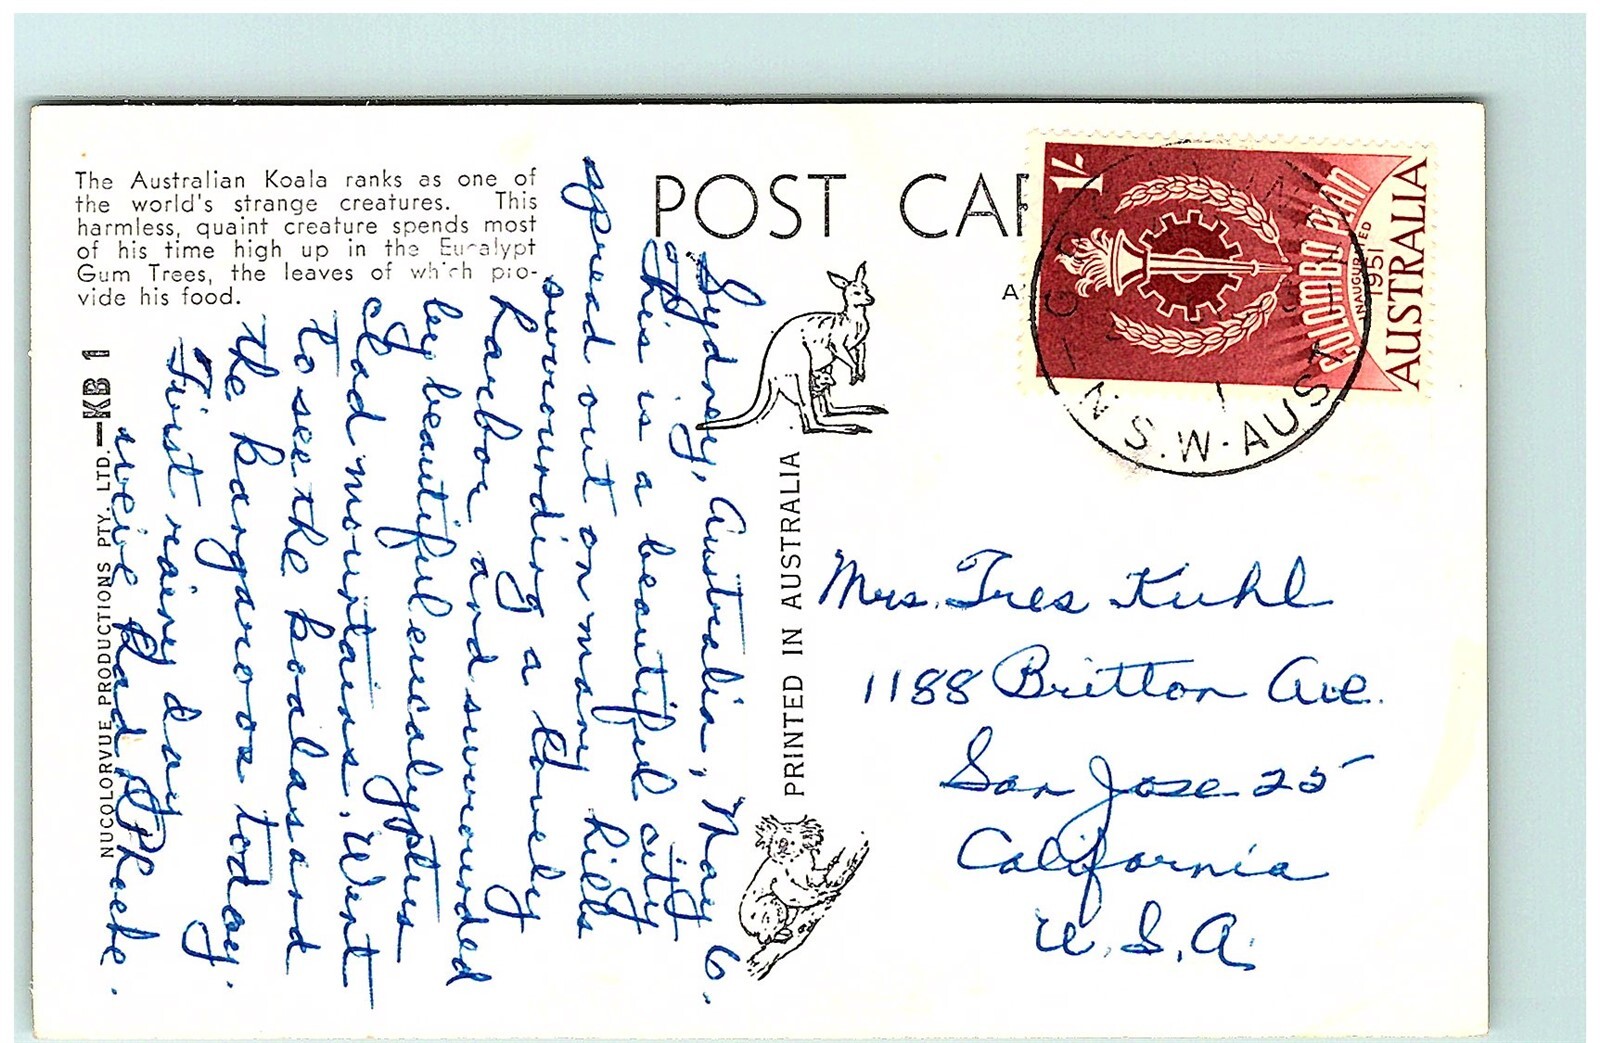 The Australian Koala ranks as one of
the world's strange creatures. This
harmless, quaint creature spends most
of his time high up in the Eucalypt
Gum Trees, the leaves of which pro-
vide his food.
POST CAR
NUCOLORVUE PRODUCTIONS PTY. LTD.—KB 1
PRINTED IN AUSTRALIA
1/-
COLOMBO PLAN
INAUGURATED
1951
AUSTRALIA
N.S.W-AUST
Sydney, Australia, May 6.
This is a beautiful city
spread out on many hills
surrounding a lovely
harbor and surrounded
by beautiful eucalyptus
clad mountains. Went
to see the koalas and
the kangaroos today.
First rainy day
we've had. Phoebe.
Mrs. Tres Kuhl
1188 Britton Ave.
San Jose 25
California
U.S.A.